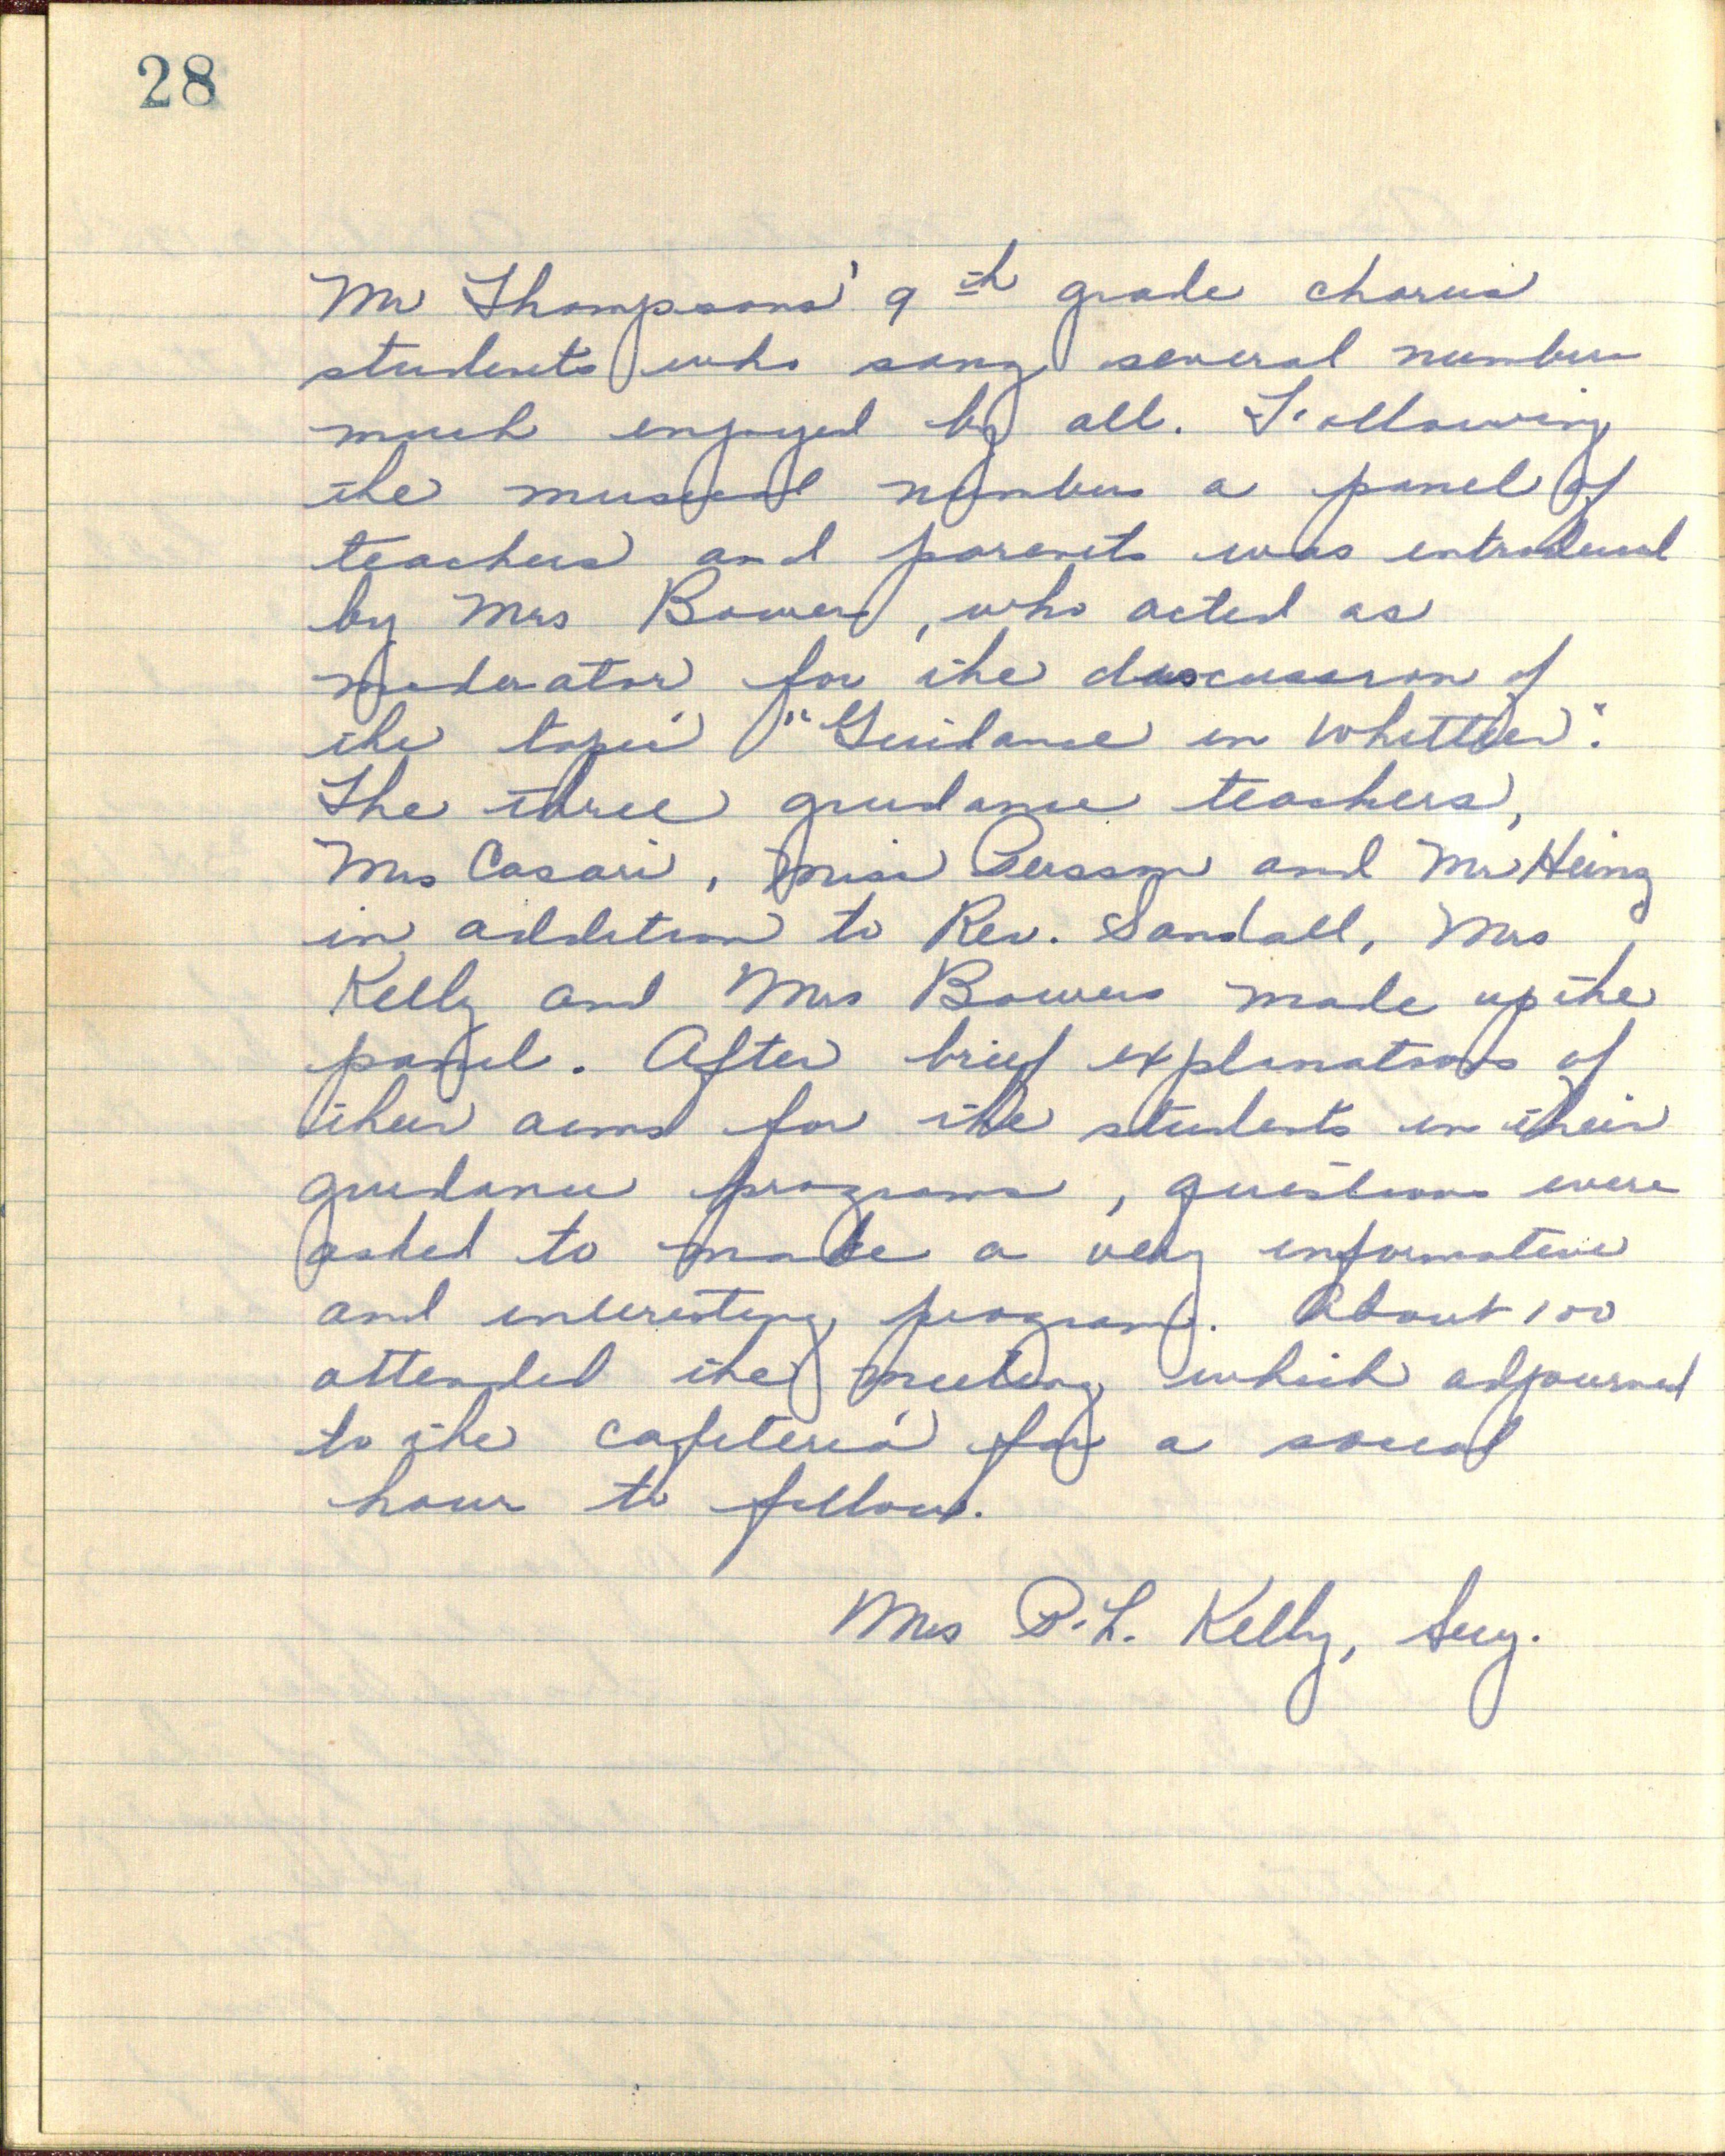 28
Mr Thompsons' 9th grade chorus
students who sang several numbers
much enjoyed by all. Following
the musical numbers a panel of
teachers and parents was introduced
by Mrs Bowers, who acted as
moderator for the discussion of
the topic "Guidance in Whittier".
The three guidance teachers,
Mrs Casari, Miss Persson and Mr Heinz
in addition to Rev. Sandall, Mrs
Kelly and Mrs Bowers made up the
panel. After brief explanations of
their aims for the students in their
guidance programs, questions were
asked to make a very informative
and interesting program. About 100
attended the meeting which adjourned
to the cafeteria for a social
hour to follow.
Mrs P. L. Kelly, Secy.